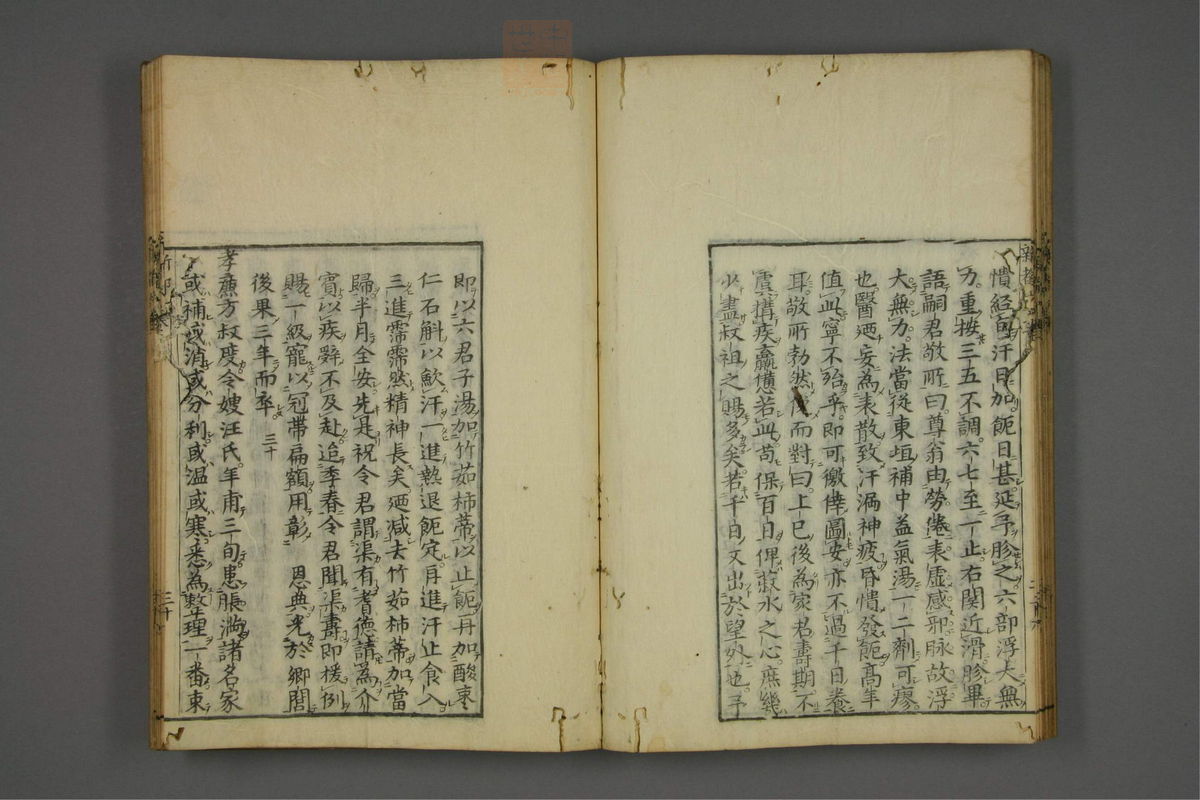 憒經旬汗日加䭇日甚延予胗之六部浮大無
力重按三五不調六七至一止右関近滑胗畢
語嗣君敬所曰尊翁由勞倦表虛感邪脉故浮
大無力法當從東垣補中益氣湯一二劑可瘳
也醫廼妄為表散致汗漏神疲昏憒發䭇高年
值此寧不殆乎即可徼倖圖安亦不過千日養
耳敬所勃然而對曰上巳後為家君壽期不
虞搆疾羸憊若此苟保百日俾菽水之心庶幾
少盡叔祖之賜多矣若千日又出於望外也予
即以六君子湯加竹茹柿蒂以止䭇再加酸棗
仁石斛以歛汗一進熱退䭇定再進汗止食入
三進霈霈然精神長矣廼減去竹茹柿蒂加當
歸半月全安先是祝令君謂渠有耆德請為介
賓以疾辤不及赴迨季春令君聞渠壽即援例
賜一級寵以冠帶扁額用彰 恩典光於鄉閭
後果三年而卒 三十
孝廉方叔度令嫂汪氏年甫三旬患脹滿諸名家
或補或消或分利或温或寒悉為整理一番束